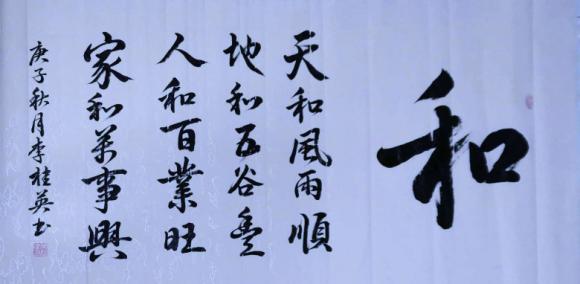 和
天和風雨順
地和五谷豊
人和百業旺
家和萬事興
庚子秋月李桂英书